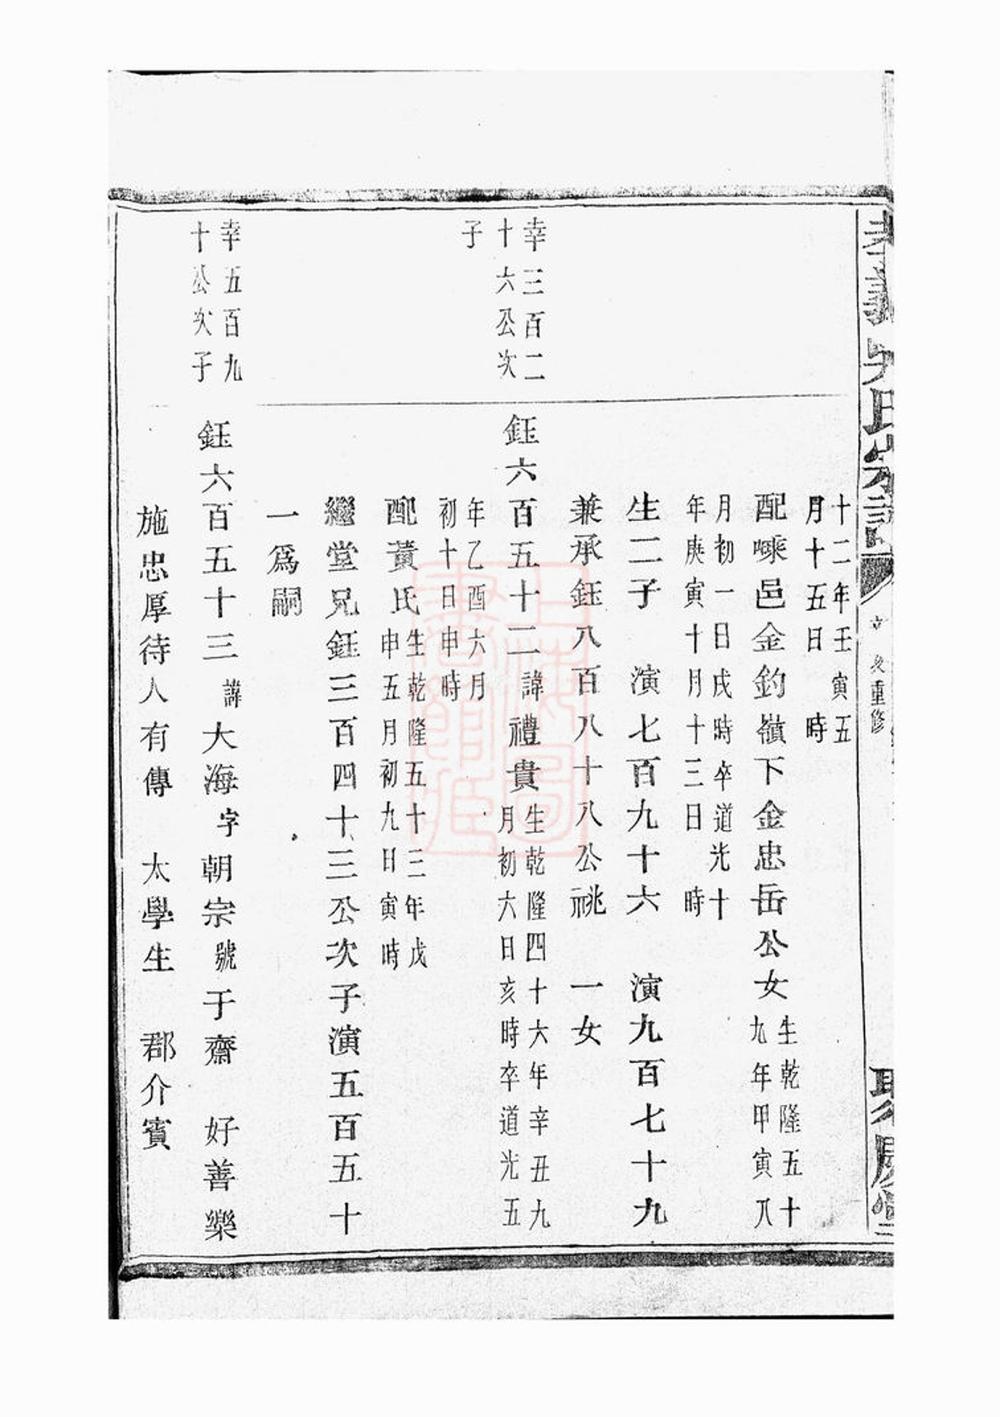 氏宗譜
重修
十二年壬寅五
月十五日 時
配嵊邑金釣嶺下金忠岳公女
生乾隆五十
九年甲寅八
月初一日戌時卒道光十
年庚寅十月十三日 時
生二子 演七百九十六 演九百七十九
兼承鈺八百八十八公祧 一女
幸三百二
十六公次
子
鈺六百五十二諱禮貴
生乾隆四十六年辛丑九
月初六日亥時卒道光五
年乙酉六月
初十日申時
配黃氏
生乾隆五十三年戊
申五月初九日寅時
繼堂兄鈺三百四十三公次子演五百五十
一爲嗣
幸五百九
十公次子
鈺六百五十三諱大海字朝宗號于齋 好善樂
施忠厚待人有傳 太學生 郡介賓